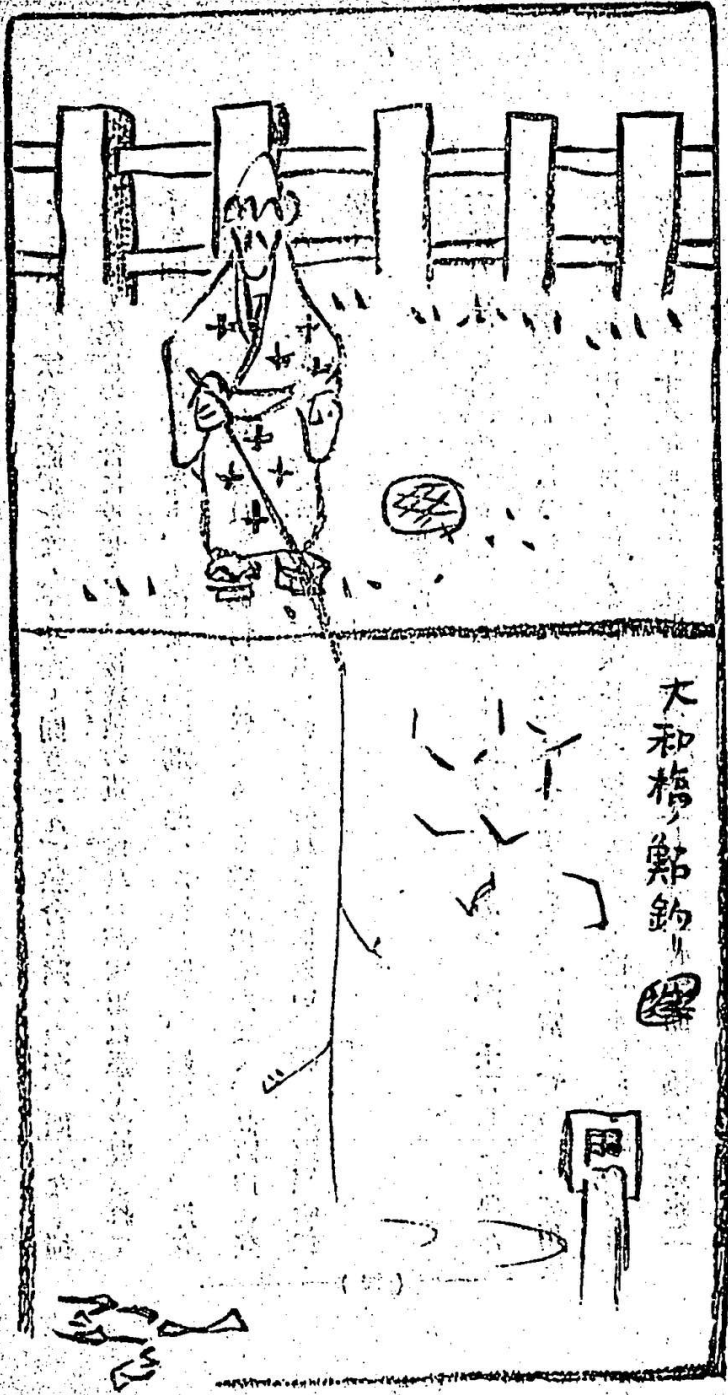 大和橋ノ鮎釣リ